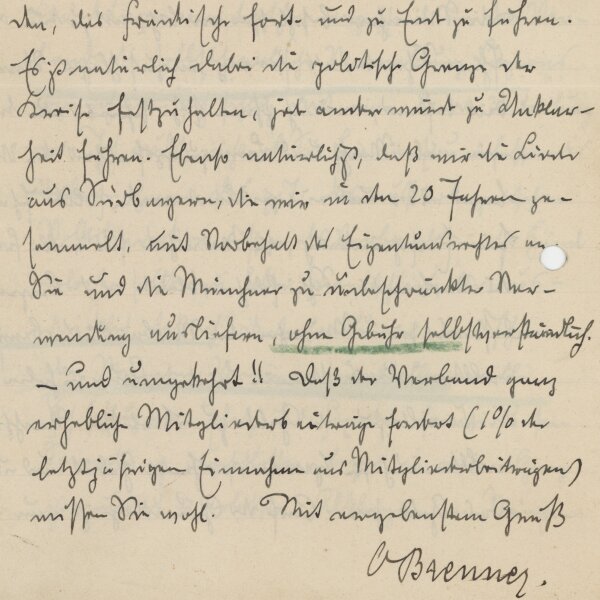 den, das Fränkische fort- und zu End zu führen.
Es ist natürlich dabei die politische Grenze der
Kreise festzuhalten, jed andere würde zu Unklar-
heit führen. Ebenso natürlich ist, daß wir die Lieder
aus Südbayern, die wir in den 20 Jahren ge-
sammelt, mit Vorbehalt des Eigentumsrechtes an
Sie und die Münchner zu unbeschränkter Ver-
wendung ausliefern, ohne Gebühr selbstverständlich.
— und umgekehrt!! Daß der Verband ganz
erhebliche Mitgliederbeiträge fordert (1% der
letztjährigen Einnahme aus Mitgliederbeiträgen)
wissen Sie wohl. Mit ergebenstem Gruß
OBrenner.